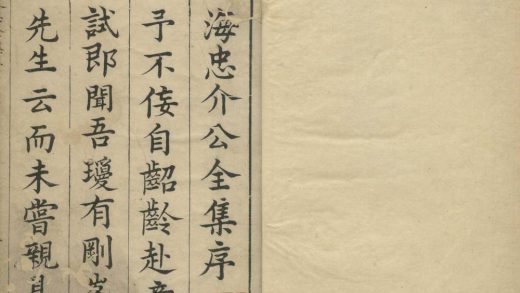 海忠介公全集序
予不佞自齠齡赴
試即聞吾瓊有剛
先生云而未嘗親